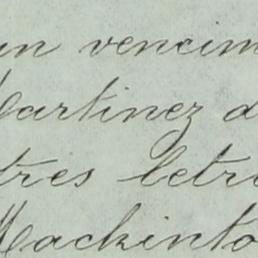 un vencim
Martinez d
tres letra
Mackinto